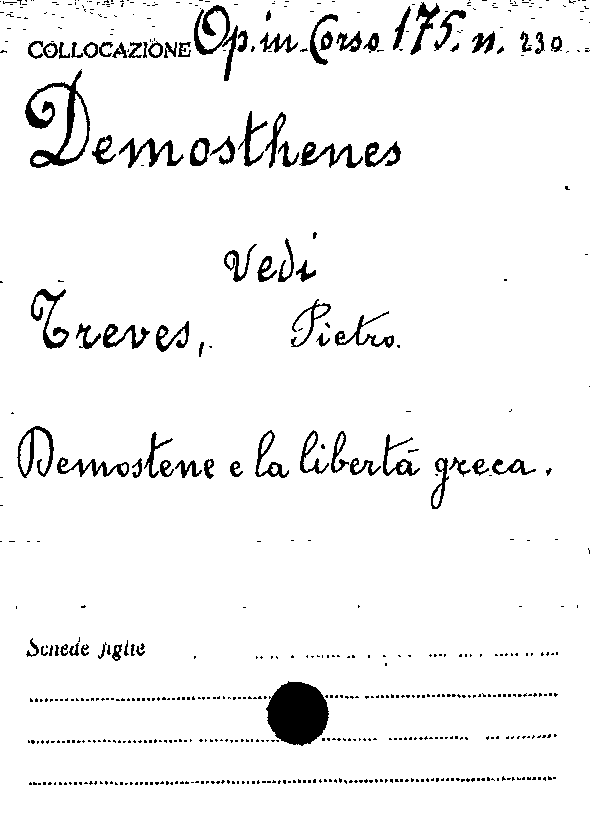 COLLOCAZIONE Op. in Corso 175. n. 230
Demosthenes
Vedi
Treves, Pietro.
Demostene e la libertà greca.
Schede figlie